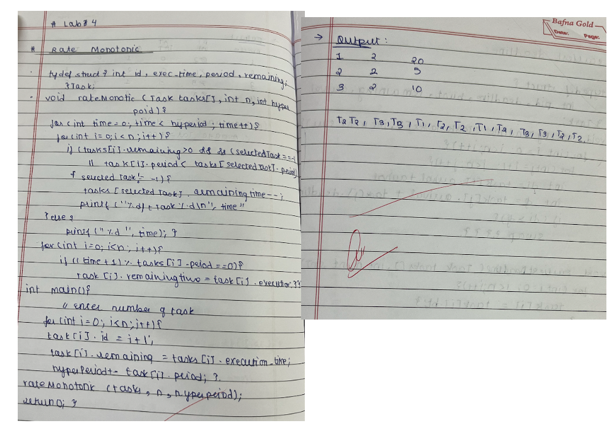 # Lab # 4
# Rate Monotonic
typedef struct { int id, exec-time, period, remaining,
} Task;
void rateMonotic (Task tasks[], int n, int hyper
poid) {
for (int time=0; time < hyperiod; time++) {
for (int i=0; i<n; i++) {
if (tasks[i].remaining >0 && (selectedTask == -1
|| task[i].period < tasks[selected].period
if selected task != -1) {
tasks [selected task]. remainingtime--;
printf ("%d, task %d\n", time"
} else {
printf ("%d", time); }
for (int i=0; i<n; i++) {
if ((time +1) % tasks[i].peiod ==0) {
task [i]. remainingtime = task[i].
int main() {
// enter number of task
for (int i=0; i<n; i++) {
task [i]. id = i+1;
task [i]. remaining = tasks[i]. execution-time;
hyperPeriod = task[i]. period; }
rateMonotonic (tasks, n, hyperperiod);
return 0; }
Bafna Gold
Date: Page:
→ Output:
1 2 20
2 2 5
3 2 10
T2 T2, T3 T3, T1, T2, T2, T1, T2, T3, T3, T2, T2.